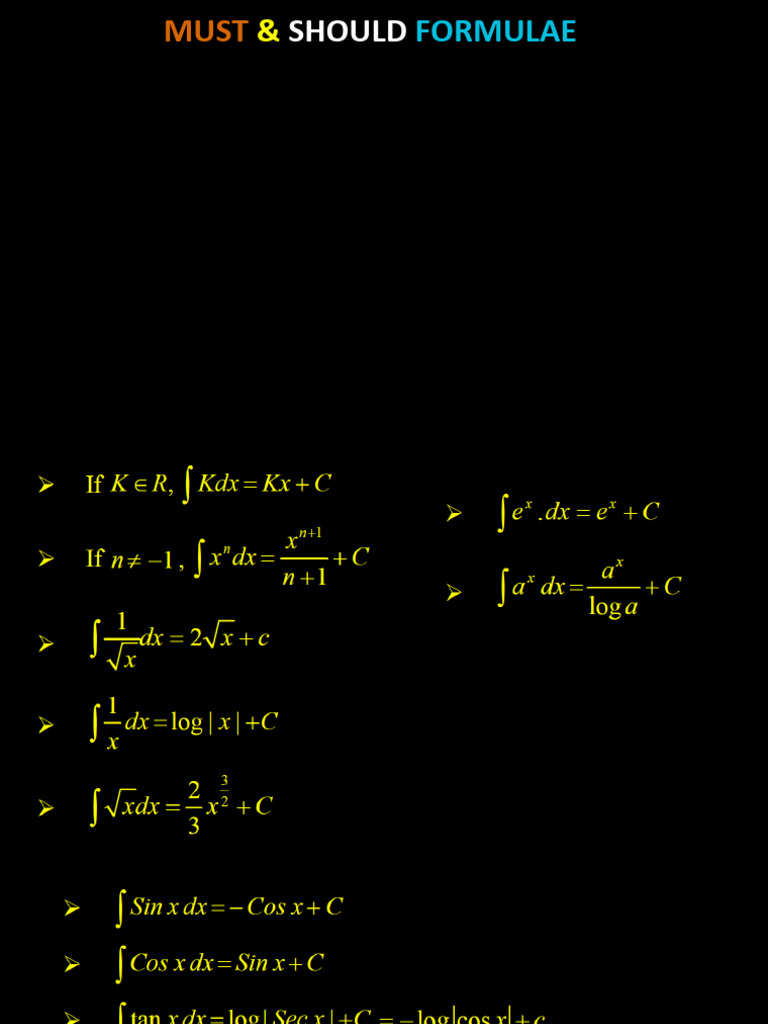 MUST & SHOULD FORMULAE
➢ If K ∈ R, ∫ Kdx = Kx + C
➢ If n ≠ −1 , ∫ xⁿ dx = xⁿ⁺¹/(n+1) + C
➢ ∫ 1/√x dx = 2√x + c
➢ ∫ 1/x dx = log | x | +C
➢ ∫ √x dx = 2/3 x^(3/2) + C
➢ ∫ eˣ .dx = eˣ + C
➢ ∫ aˣ dx = aˣ/log a + C
➢ ∫ Sin x dx = − Cos x + C
➢ ∫ Cos x dx = Sin x + C
➢ ∫ tan x dx = log | Sec x | +C = −log|cos x| + c